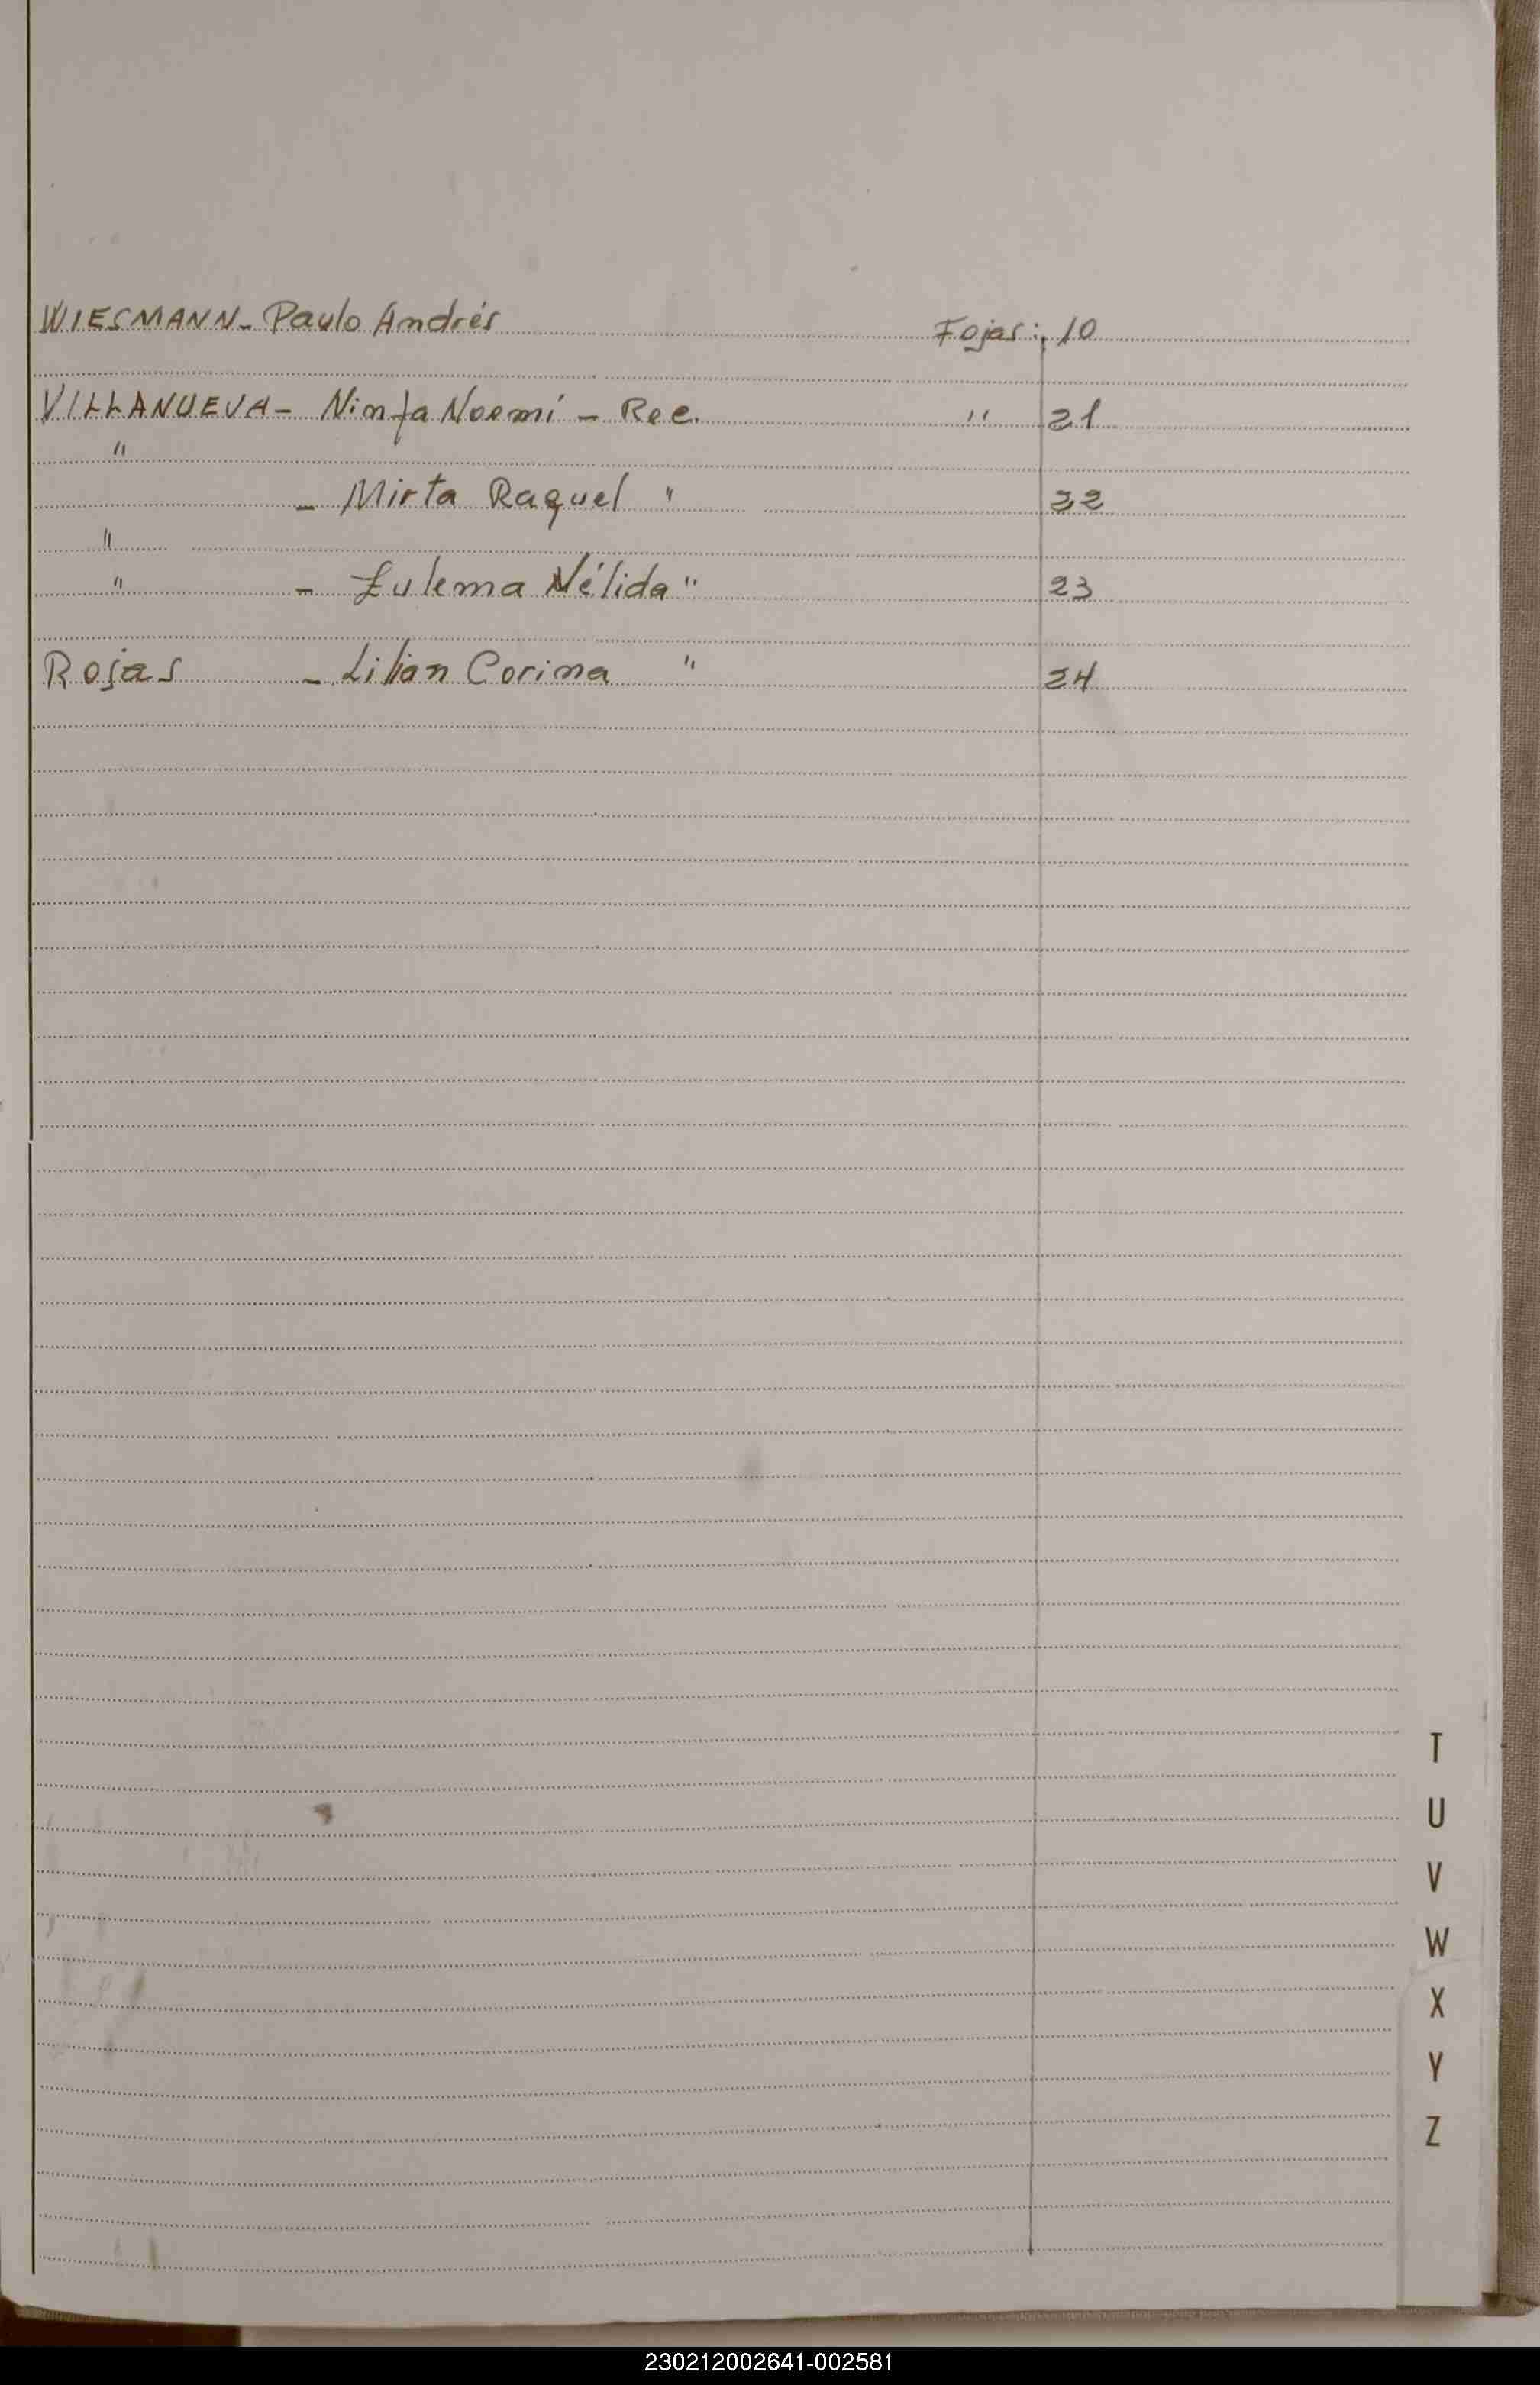 WIESMANN - Paulo Andrés Fojas: 10
VILLANUEVA - Ninfa Noemí - Rec. " 21
"
- Mirta Raquel " 22
"
" - Zulema Nélida " 23
Rojas - Lilian Corina " 24
T
U
V
W
X
Y
Z
230212002641-002581